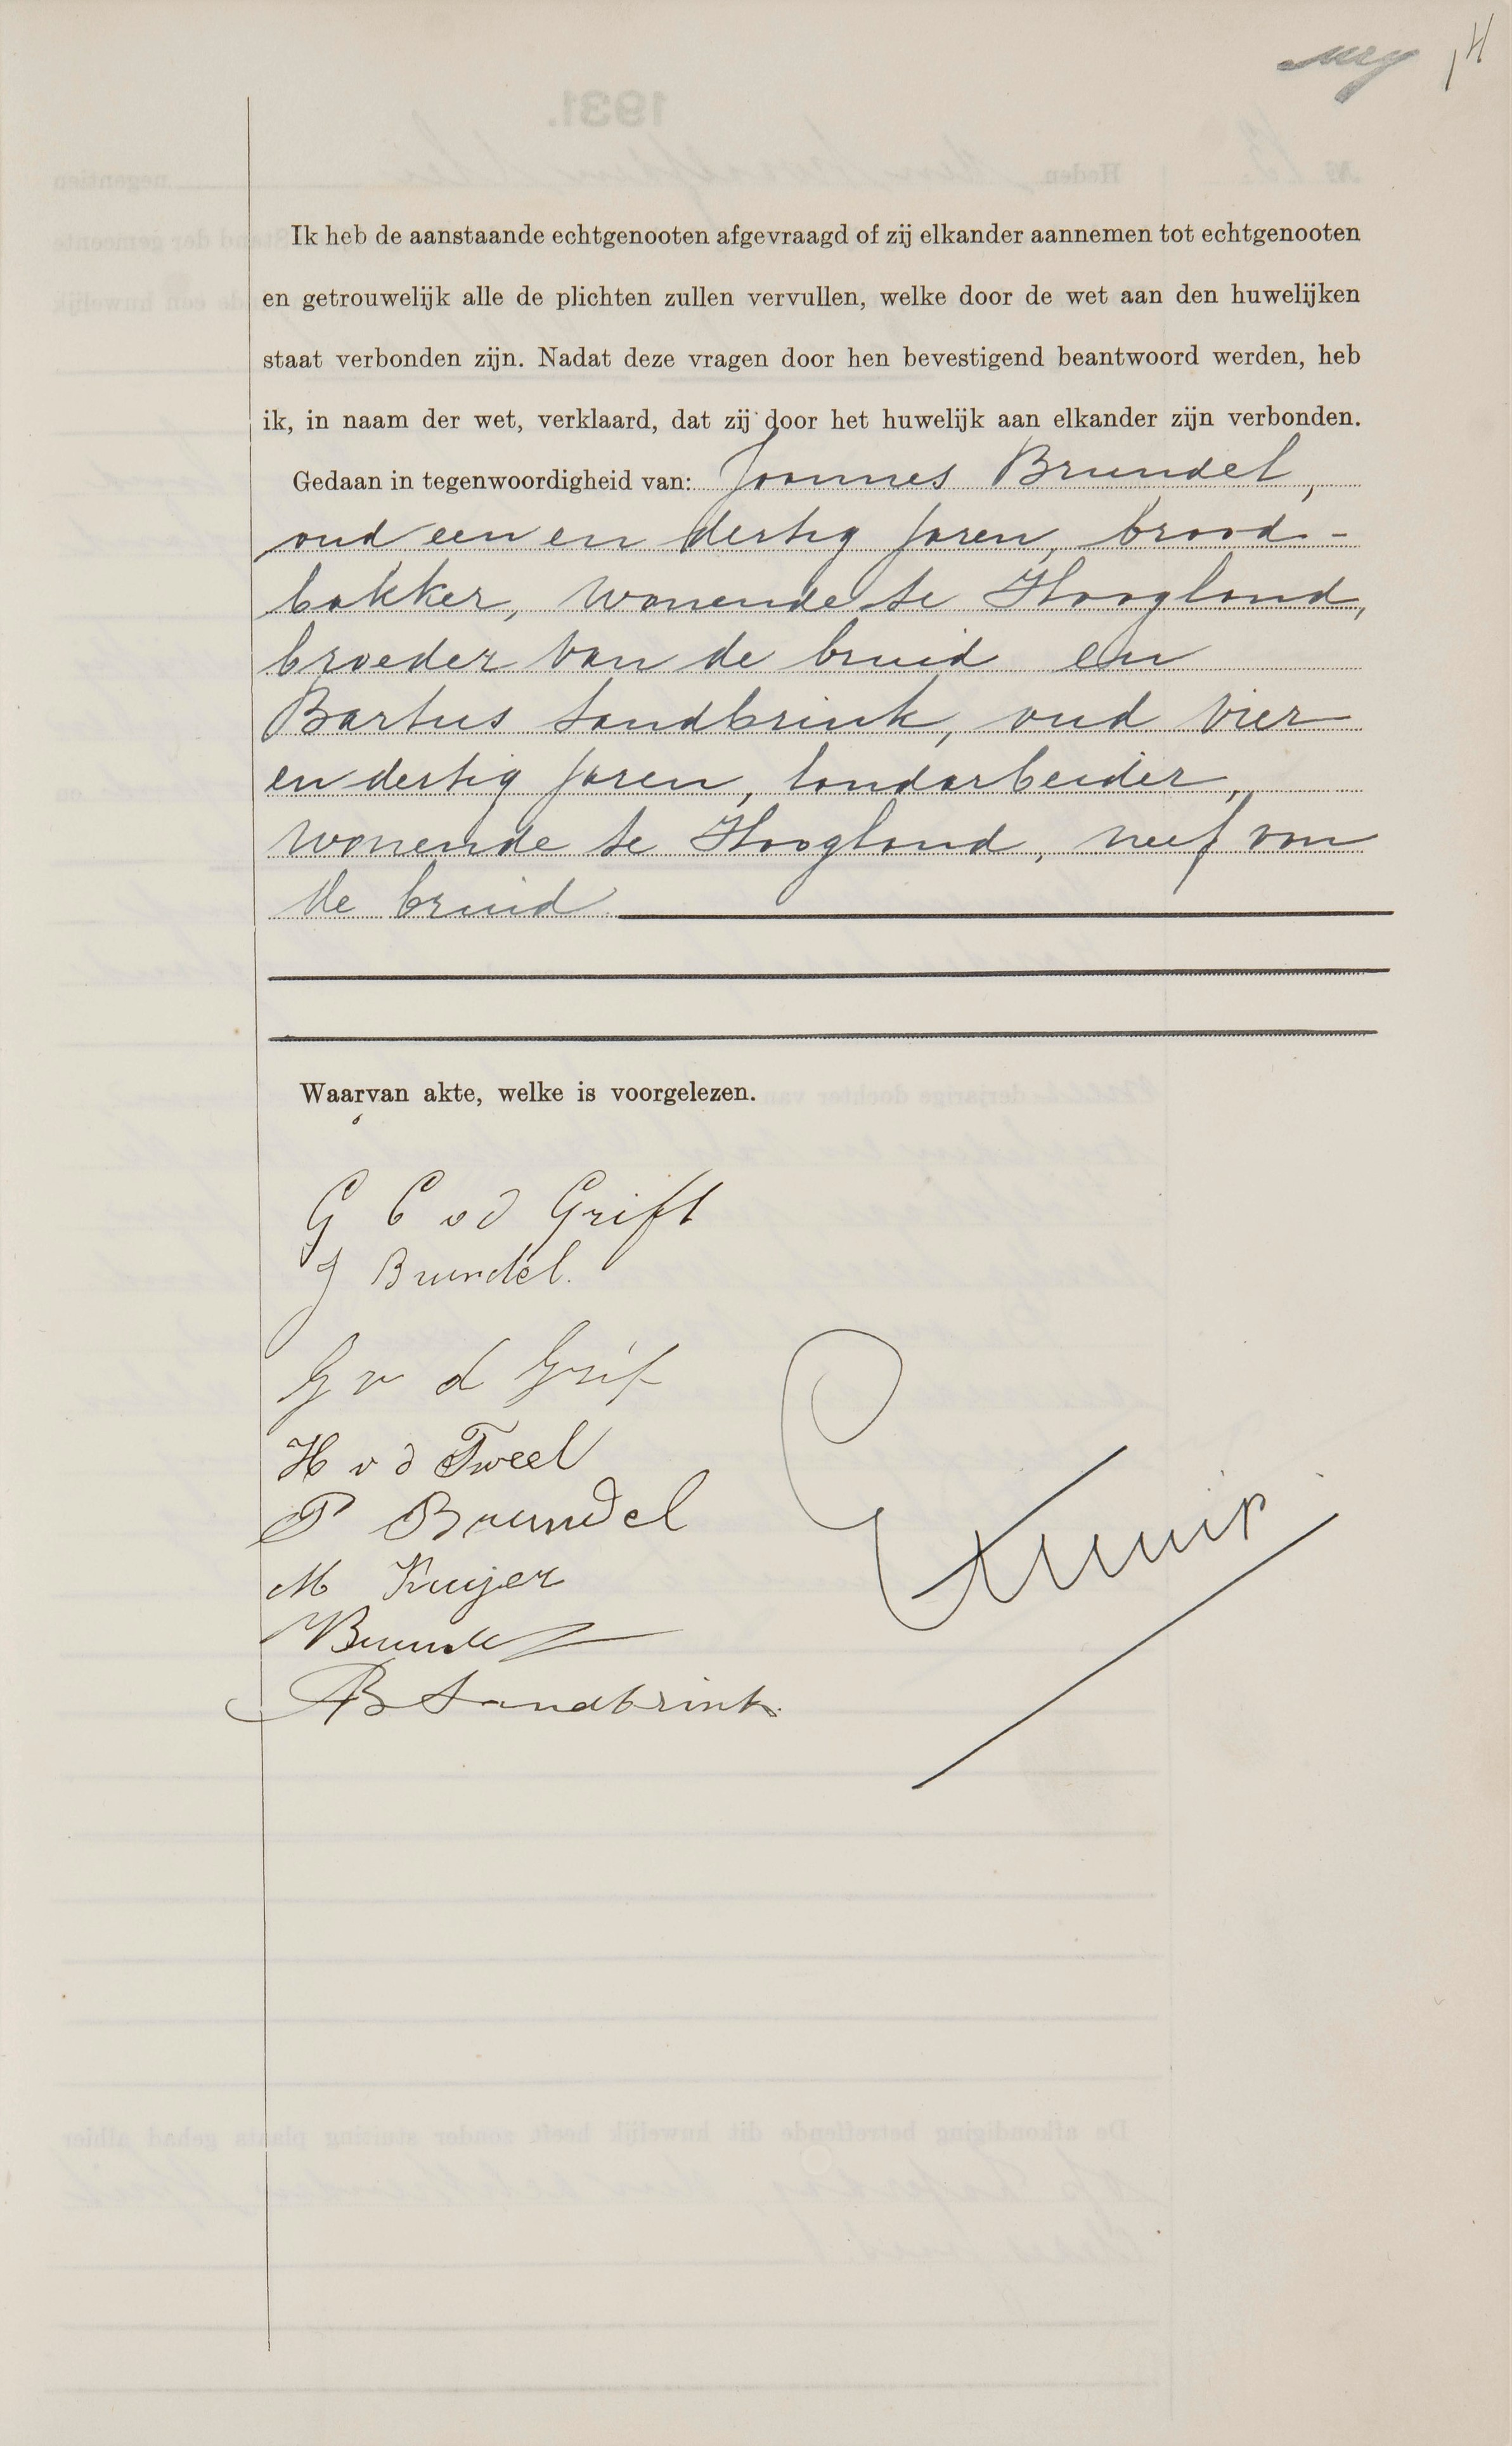 14
Ik heb de aanstaande echtgenooten afgevraagd of zij elkander aannemen tot echtgenooten
en getrouwelijk alle de plichten zullen vervullen, welke door de wet aan den huwelijken
staat verbonden zijn. Nadat deze vragen door hen bevestigend beantwoord werden, heb
ik, in naam der wet, verklaard, dat zij door het huwelijk aan elkander zijn verbonden.
Gedaan in tegenwoordigheid van: Joannes Brundel,
oud een en dertig jaren, brood-
bakker, wonende te Hoogland,
broeder van de bruid en
Bartus Sandbrink, oud vier
en dertig jaren, landarbeider,
wonende te Hoogland, neef van
de bruid
Waarvan akte, welke is voorgelezen.
G C v d Grift
J Brundel.
G v d Grif
H v d Tweel
P Brundel
M Kuijer
Brundel
B Sandbrink.